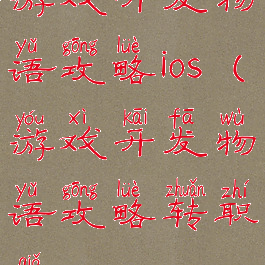 yǔ gōng lüè
语攻略ios（
yóu xì kāi fā wù
游戏开发物
yǔ gōng lüè zhuǎn zhí
语攻略转职